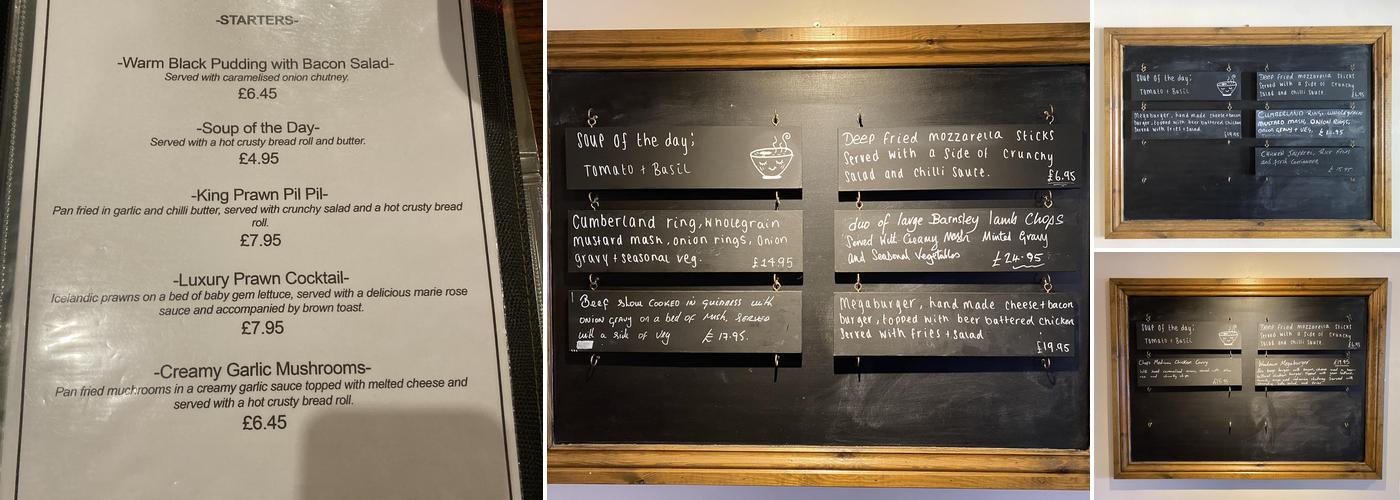 -STARTERS-
-Warm Black Pudding with Bacon Salad-
Served with caramelised onion chutney.
£6.45
-Soup of the Day-
Served with a hot crusty bread roll and butter.
£4.95
-King Prawn Pil Pil-
Pan fried in garlic and chilli butter, served with crunchy salad and a hot crusty bread
roll.
£7.95
-Luxury Prawn Cocktail-
Icelandic prawns on a bed of baby gem lettuce, served with a delicious marie rose
sauce and accompanied by brown toast.
£7.95
-Creamy Garlic Mushrooms-
Pan fried muchrooms in a creamy garlic sauce topped with melted cheese and
served with a hot crusty bread roll.
£6.45
Soup of the day;
Tomato + Basil
Deep fried mozzarella sticks
Served with a side of crunchy
salad and chilli sauce.
£6.95
Cumberland ring, wholegrain
mustard mash, onion rings, onion
gravy + seasonal veg.
£14.95
duo of large Barnsley lamb Chops
Served with Creamy Mash Minted Gravy
and Seasonal Vegetables £24.95
Beef slow cooked in guinness with
onion gravy on a bed of mash, served
with a side of veg £17.95.
Megaburger, hand made cheese + bacon
burger, topped with beer battered chicken
Served with fries + salad
£19.95
Soup of the day;
Tomato + Basil
Deep fried mozzarella sticks
Served with a side of crunchy
salad and chilli sauce.
£6.95
Megaburger, hand made cheese + bacon
burger, topped with beer battered chicken
Served with fries + salad
£19.95
Cumberland ring, wholegrain
mustard mash, onion rings,
onion gravy + veg, £14.95
Chicken
and
Soup of the day;
Tomato + Basil
Deep fried mozzarella sticks
Served with a side of crunchy
salad and chilli sauce.
£6.95
Chicken Curry
Megaburger £19.95